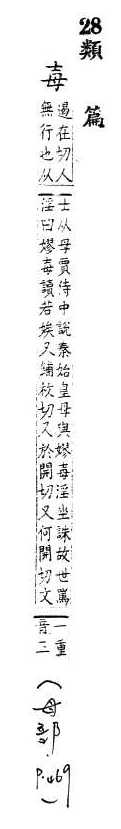 28類 篇
毐
遏在切人
無行也从
士从母賈侍中説秦始皇母與嫪毐淫坐誅故世罵
淫曰嫪毐讀若娭又鋪枚切又於開切又何開切文
一重
音三
(母部 p.469)